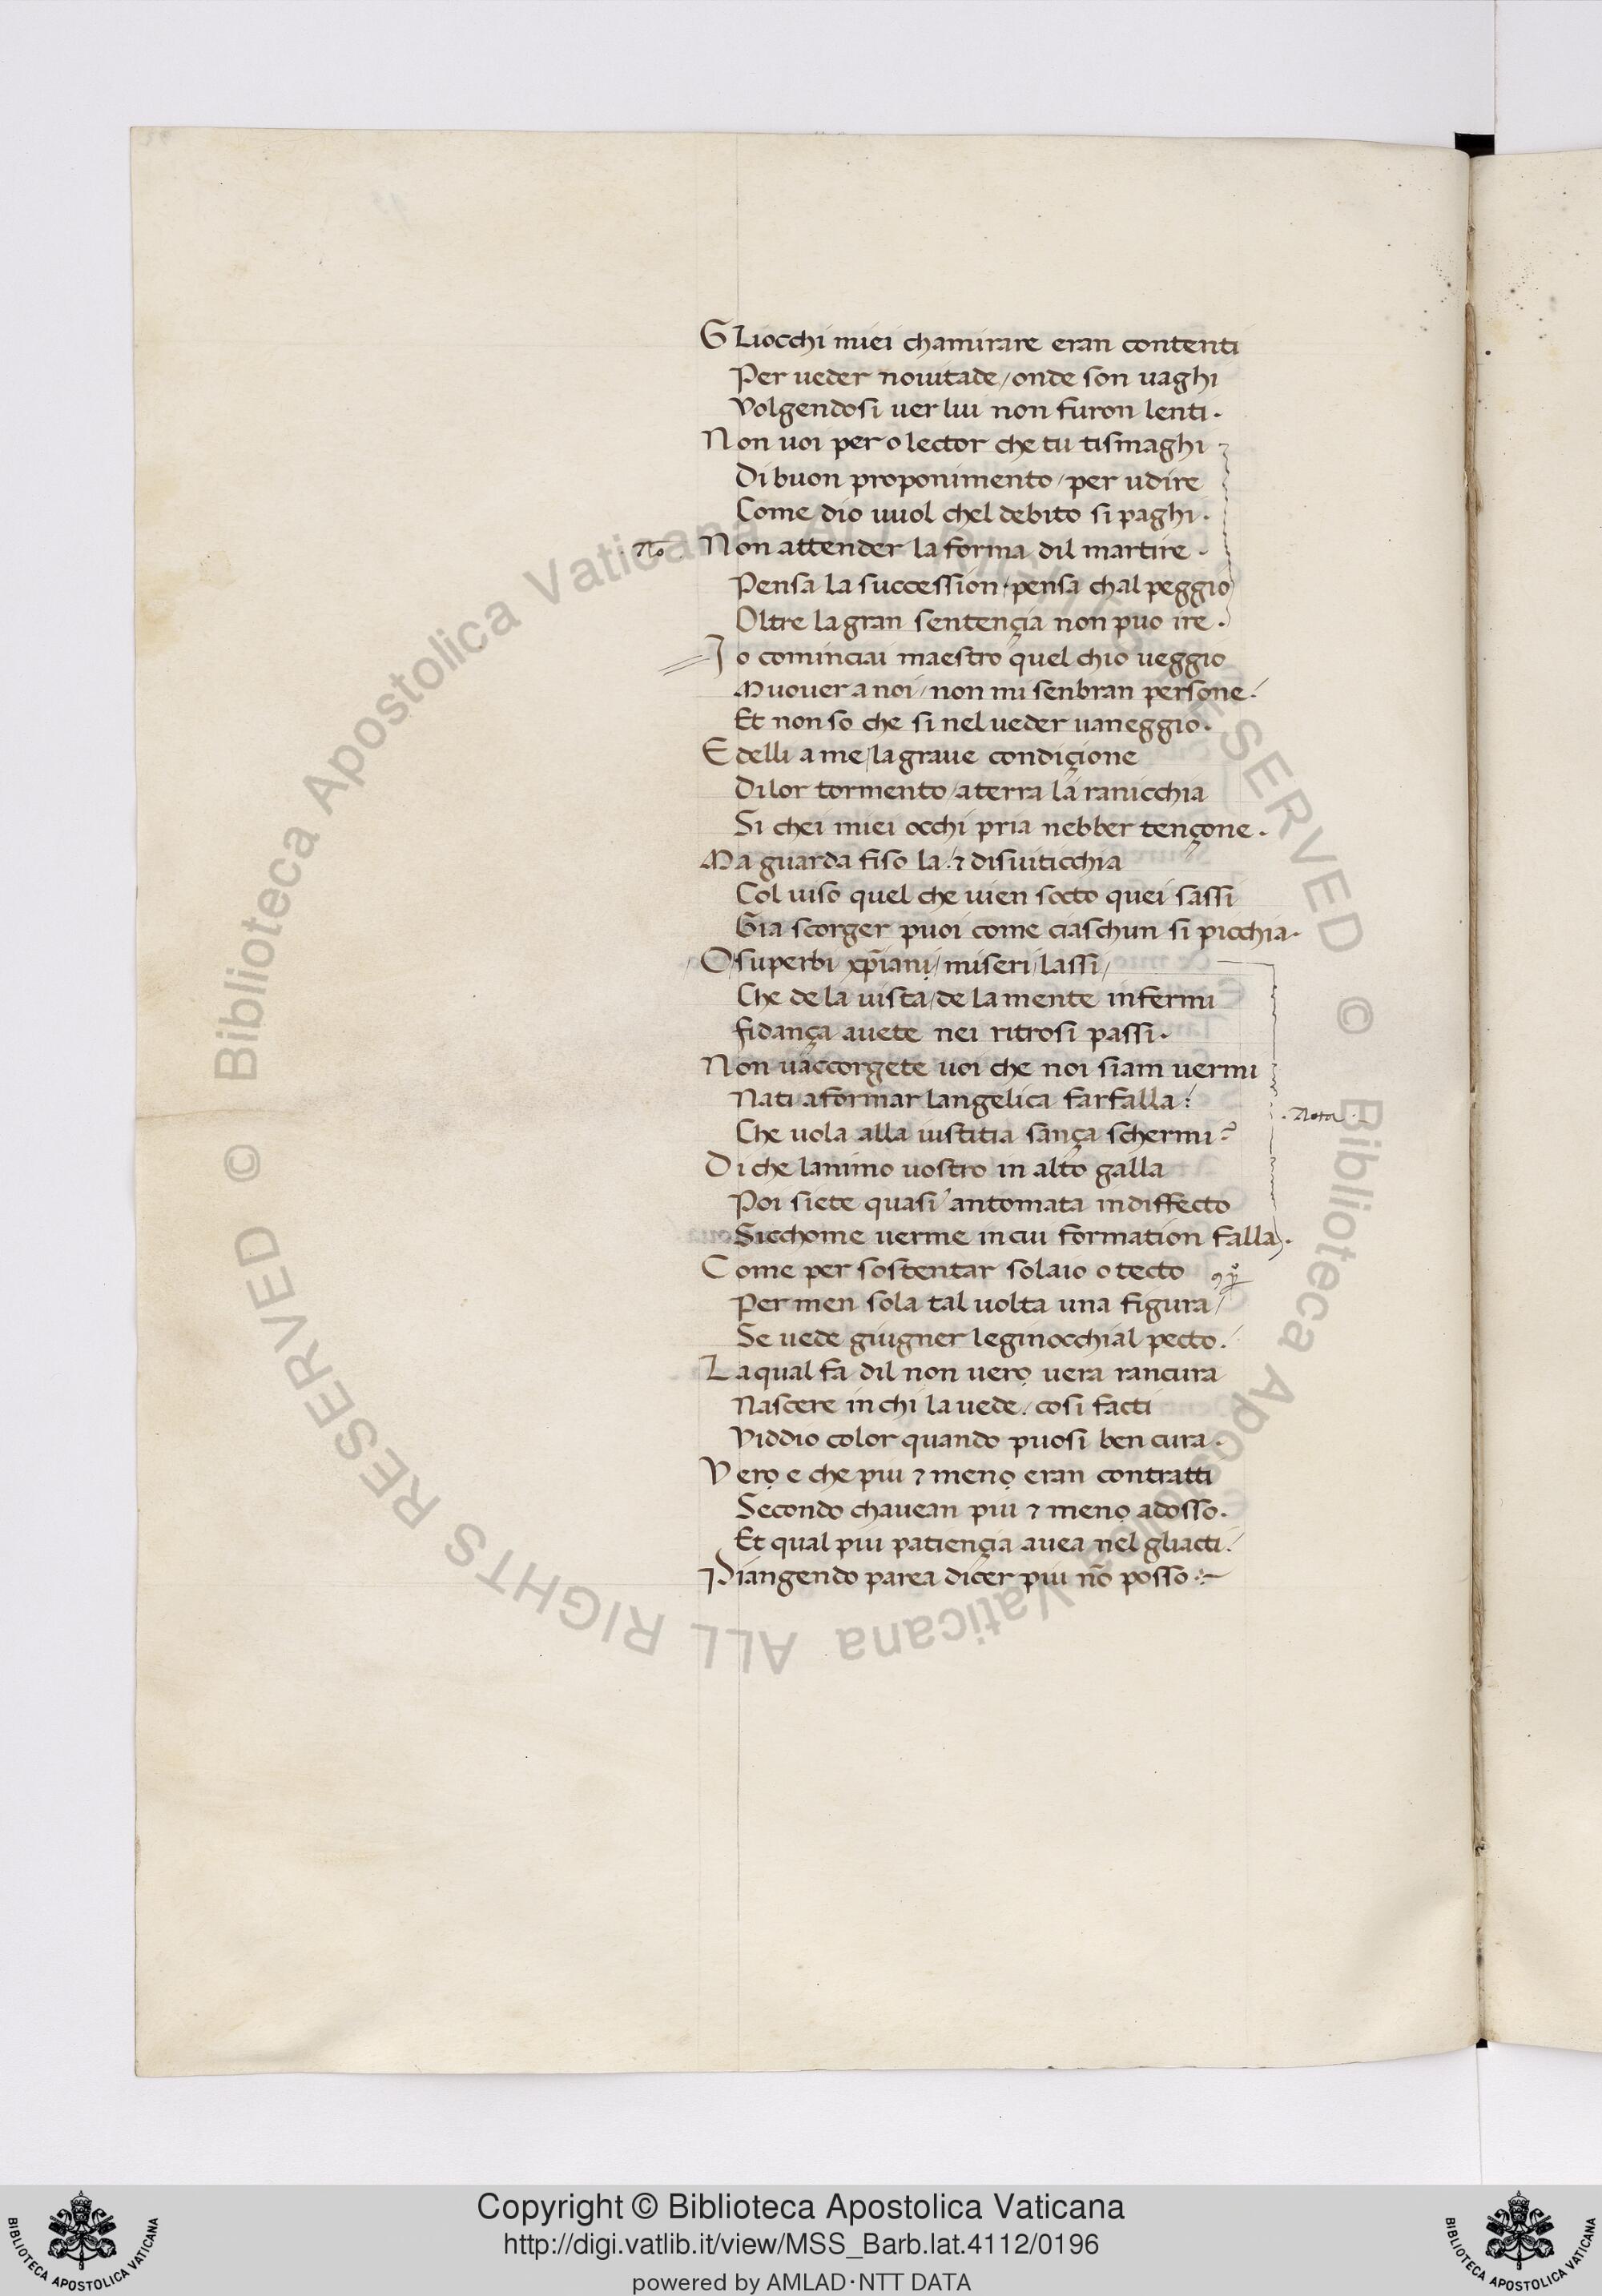 GLiocchi miei chamirare eran contenti
Per ueder nouitade / onde son uaghi
Volgendosi uer lui non furon lenti.
Non uoi pero lector che tu tismaghi
Di buon proponimento / per udire
Come dio uuol chel debito si paghi.
No Non attender la forma dil martire.
Pensa la succession. pensa chal peggio
Oltre la gran sentençia non puo ire.
Io cominciai maestro quel chio ueggio
Muouer a noi / non mi senbran persone.
Et non so che si nel ueder uaneggio.
E delli a me / la graue condiçione
Di lor tormento / a terra la ranicchia
Si chei miei occhi pria nebber tençone.
Ma guarda fiso la. & disuiticchia
Col uiso quel che uien socto quei sassi
Gia scorger puoi come ciaschun si picchia.
O superbi xp̄iani / miseri / lassi /
Che de la uista / de la mente infermi
fidança auete nei ritrosi passi.
Non uaccorgete uoi che noi siam uermi
Nati a formar langelica farfalla:
Nota
Che uola alla iustitia sança schermi?
Di che lanimo uostro in alto galla
Poi siete quasi antomata indiffecto
Sicchome uerme in cui formation falla.
Come per sostentar solaio o tecto
Per men sola tal uolta una figura /
Se uede giugner le ginocchial pecto.
La qual fa dil non uero uera rancura
Nascere in chi la uede. cosi facti
Viddio color quando puosi ben cura.
Vero e che piu & meno eran contratti
Secondo chauean piu & meno adosso.
Et qual piu patiençia auea nel gliacti.
Piangendo parea dicer piu nō posso
© Biblioteca Apostolica Vaticana ALL RIGHTS RESERVED © Biblioteca Apostolica Vaticana ALL RIGHTS RESERVED
Copyright © Biblioteca Apostolica Vaticana
http://digi.vatlib.it/view/MSS_Barb.lat.4112/0196
powered by AMLAD·NTT DATA
BIBLIOTECA APOSTOLICA VATICANA
BIBLIOTECA APOSTOLICA VATICANA